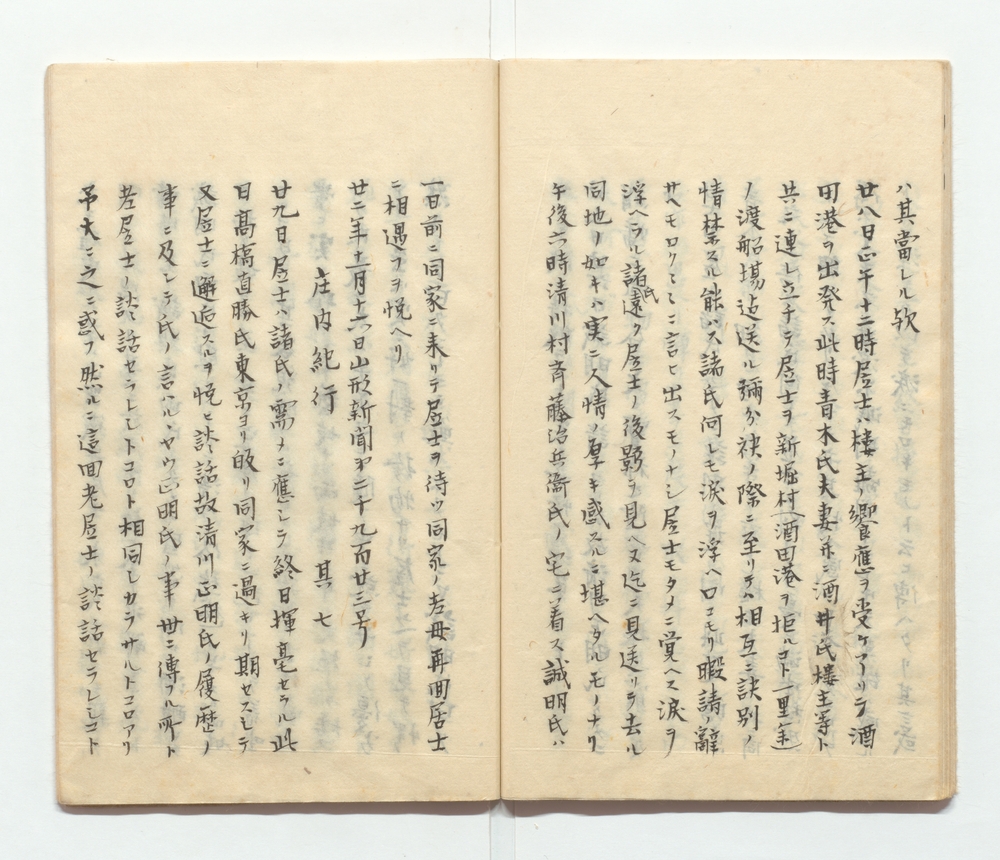 ハ其當レル欤
廿八日正午十二時居士ハ樓主ノ饗應ヲ受ケアリテ酒
田港ヲ出発ス此時青木氏夫妻并ニ酒井氏樓主等ト
共ニ連レ立チテ居士ヲ新堀村(酒田港ヲ距ルコト一里余)
ノ渡船場迠送ル彌分袂ノ際ニ至リテハ相互ニ訣別ノ
情禁スル能ハス諸氏何レモ涙ヲ浮ヘ口コモリ暇請ノ辭
サヘモロクミミニ言ヒ出スモノナシ居士モタメニ覚ヘス涙ヲ
浮ヘラル諸氏遠ク居士ノ後影ヲ見ヘヌ迄ニ見送リテ去ル
同地ノ如キハ実ニ人情ノ厚キ感スルニ堪ヘタルモノナリ
午後六時清川村斉藤治兵衞氏ノ宅ニ着ス誠明氏ハ
一日前ニ同家ニ来リテ居士ヲ待ツ同家ノ老母再回居士
ニ相遇フヲ悦ヘリ
廿二年十一月十六日山形新聞第二千九百廿三号
庄内紀行 其七
廿九日居士ハ諸氏ノ需メニ應シテ終日揮毫セラル此
日髙橋直勝氏東京ヨリ皈リ同家ニ過キリ期セスシテ
又居士ニ邂逅スルヲ悦ヒ談話故清川正明氏ノ履歴ノ
事ニ及シテ氏ノ言ハルヽヤウ正明氏ノ事 世ニ傳フル所ト
老居士ノ談話セラレシトコロト相同シカラサルトコロアリ
予大ニ之ニ惑フ然ルニ這回老居士ノ談話セラレシコト